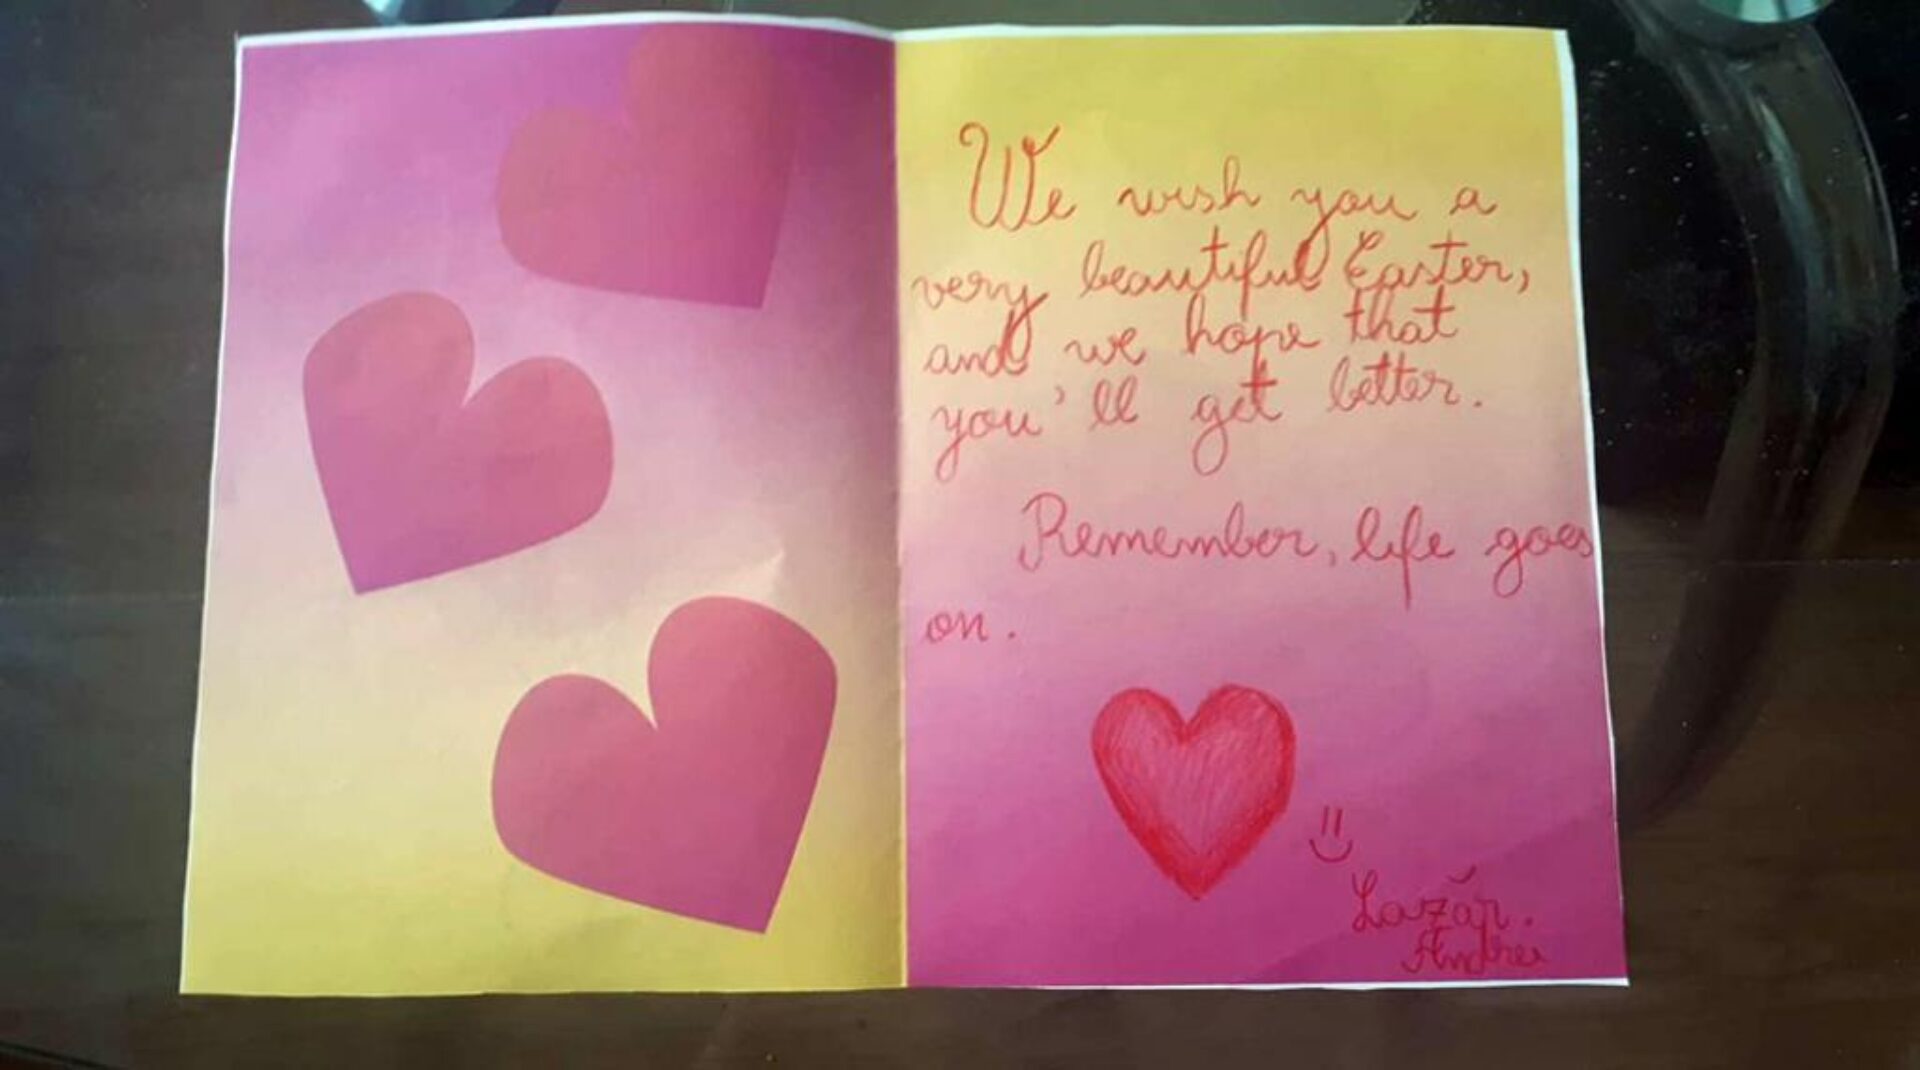 We wish you a
very beautiful Easter,
and we hope that
you'll get better.
Remember, life goes
on.
Lazăr.
Andrei